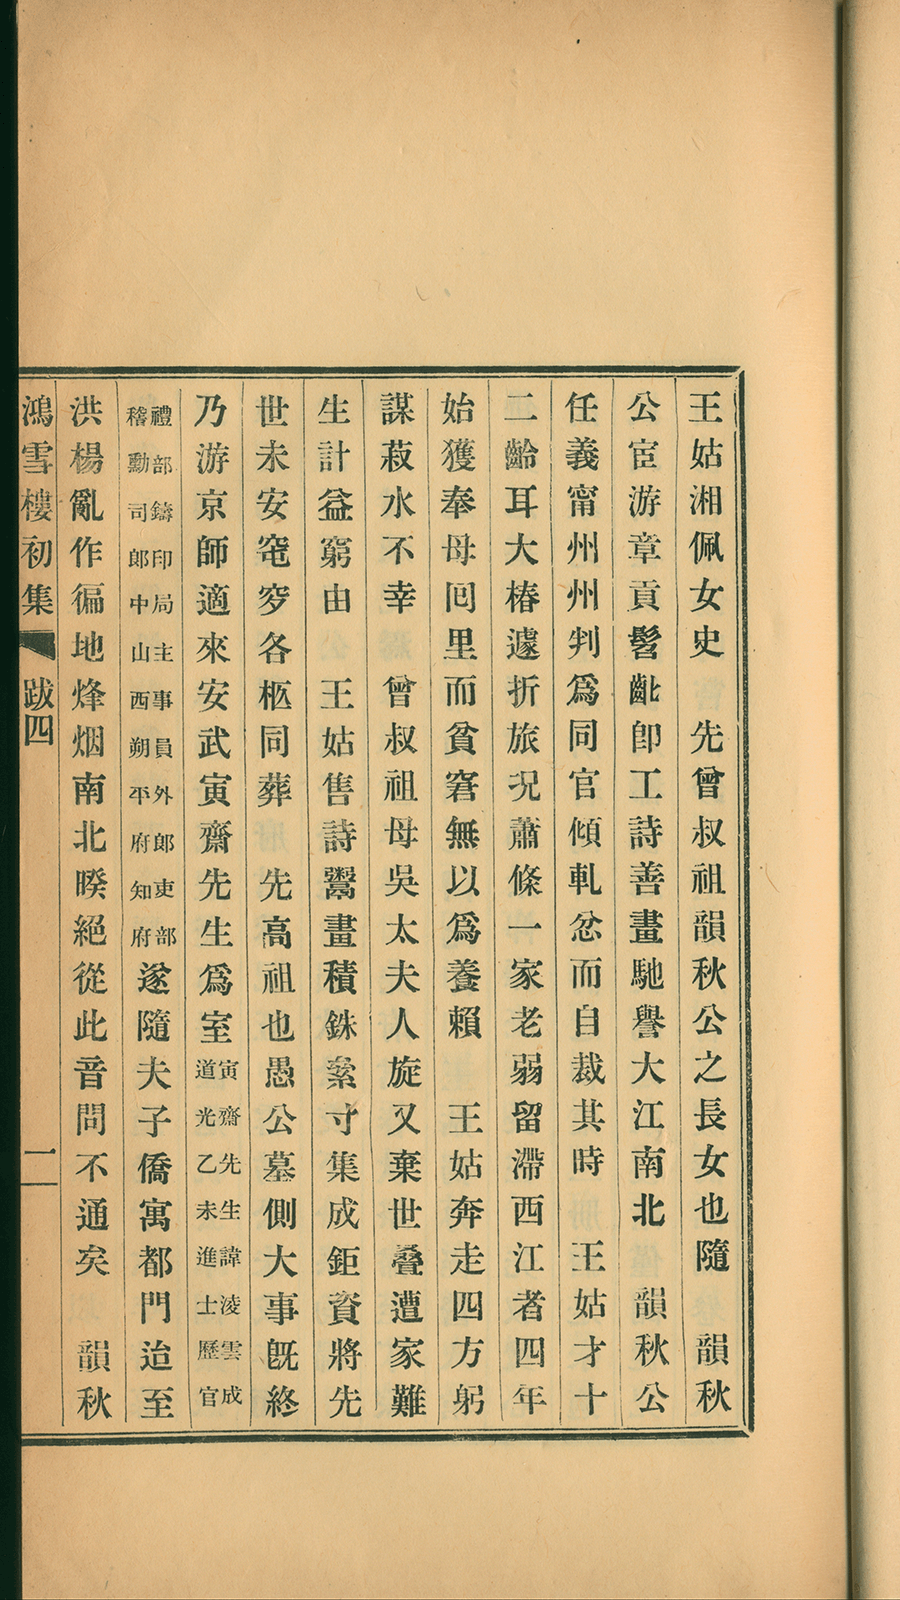 王姑湘佩女史　先曾叔祖韻秋公之長女也隨　韻秋
公宦游章貢髫齔卽工詩善畫馳譽大江南北　韻秋公
任義甯州州判爲同官傾軋忿而自裁其時　王姑才十
二齡耳大椿遽折旅況蕭條一家老弱留滯西江者四年
始獲奉母回里而貧窘無以爲養賴　王姑奔走四方躬
謀菽水不幸　曾叔祖母吳太夫人旋又棄世叠遭家難
生計益窮由　王姑售詩鬻畫積銖絫寸集成鉅資將先
世未安窀穸各柩同葬　先高祖也愚公墓側大事旣終
乃游京師適來安武寅齋先生爲室寅齋先生諱淩雲成道光乙未進士歷官
禮部鑄印局主事員外郞吏部稽勳司郞中山西朔平府知府遂隨夫子僑寓都門迨至
洪楊亂作徧地烽烟南北暌絕從此音問不通矣　韻秋
鴻雪樓初集　跋四　一